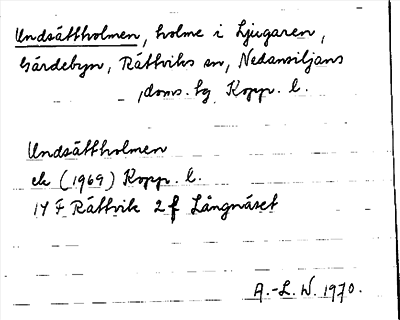 Undsättholmen, holme i Ljugaren,
Gärdebyn, Rättviks sn, Nedansiljans
doms. tg, Kopp. l.
Undsättholmen
ek (1969) Kopp. l.
14 F Rättvik 2 f Långnäset
A.-L. W. 1970.